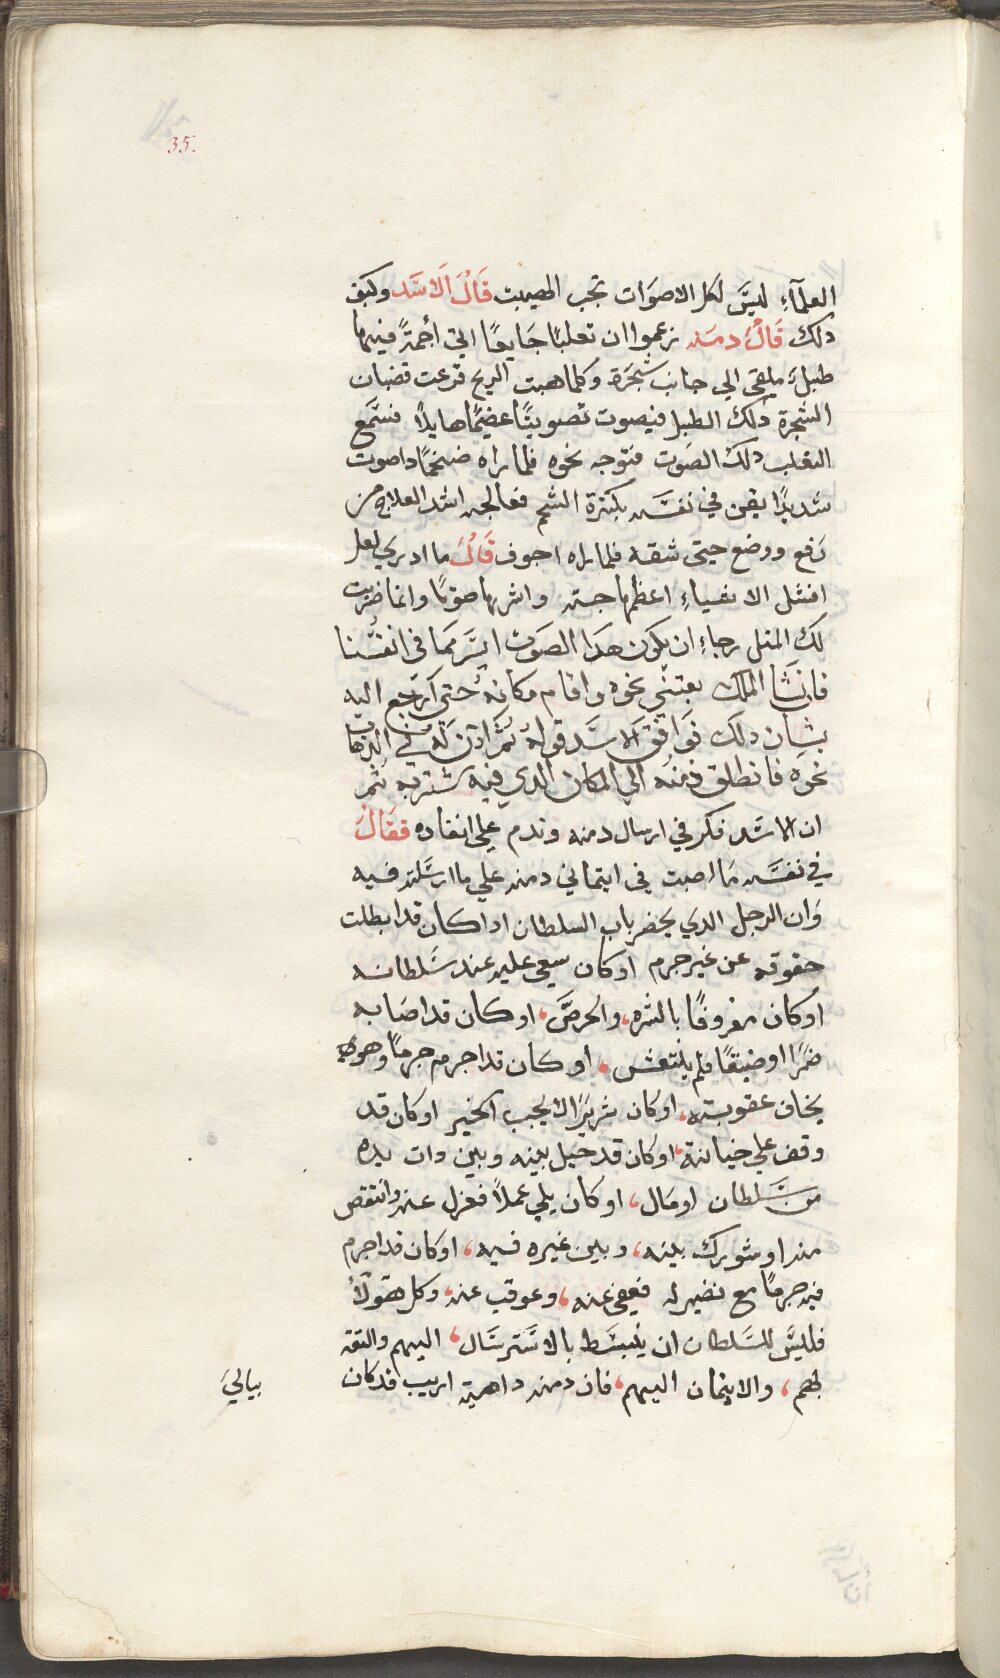 35.
العلمآءِ ليسَّ لكل الاصوَات تجب الهيبت قَالَ اَلاسَّد وكيف
دلك قَالَ دمنه زعموا ان تعلبًا جَايعًا اتي أجمةً فيها
طبلٌ ملقي الي جانب شجَرَة وكلما هبت الريح قرعت قضبان
الشجرة دلك الطبل فيصوت تصويتًا عضيمًا هايلاً فسَّمع
التعلب دلك الصَوت فتوجه نحوه فلما راه ضخمًا داصوت
شديدًا ايقن في نفسَّه بكثرة الشحم فعالجه اشد العلاج من
رَفع ووضع حيتي شقه فلما راه اجوف قَالَ ما ادري لعل
افشل الاشياءِ اعظمها جسته واشرها صوتًا وانما ضربت
لك المتل رجاءِ ان يكون هدا الصَوت ايسَّر مما في انفسُّنا
فان شَا الملك بعتني نحوه واقام مكانه حتي ارَجع اليه
بشِان دلك فوَافق الاسَّد قوله تمَّ ادن لَه في الدهاب
نحوَه فانطلق دمنُه الي المكان الدي فيه شتربه تُمر
ان الاسَّد فكر في ارسال دمنه وندم علي انفاده فقَالَ
في نفسَّه مَا اصبت في ايتماني دمنه علي ما ارسَّلته فيه
وَان الرجل الدَي يحضر باب السلطان ادا كان قد ابطلت
حقوقه عن غير جرم اوكان سيعي عليه عند سَّلطانه
اوكان معروفًا بالشره، والحرصَّ، اوكان قد اصَابه
ضرًا اوضيقًا فلم ينتعش، اوكان قد اجرم جرمًا وهو
يخاف عقوبته، اوكان شريرًا لا يحب الخير اوكان قد
وقف علي خيانة، اوكان قد حيل بينه وبين دات يده
من سَّلطان اومَال، اوكان يلي عملاً فعزل عنه وانتقص
منه اوشورك بينه، وبين غيره فيه، اوكان قد اجرم
فيه جرمًا مع نضير له فعفي عنه، وعوقب عنه، وكل هوَلأ
فلليسَّ للسَّلطان ان ينبسَّط بالاسَّترسَّال، اليهم والتقة
لهم، والايتمان اليهم، فان دمنه داهيةً اريب قد كان
بيالي